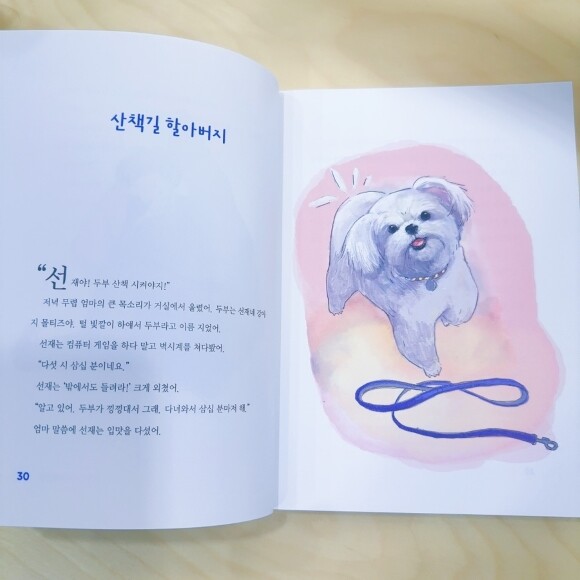 산책길 할아버지
“선재야! 두부 산책 시켜야지!”
저녁 무렵 엄마의 큰 목소리가 거실에서 울렸어. 두부는 선재네 강아
지 몰티즈야. 털 빛깔이 하얘서 두부라고 이름 지었어.
선재는 컴퓨터 게임을 하다 말고 벽시계를 쳐다봤어.
“다섯 시 삼십 분이네요.”
선재는 ‘밖에서도 들려라!’ 크게 외쳤어.
“알고 있어. 두부가 낑낑대서 그래. 다녀와서 삼십 분마저 해.”
엄마 말씀에 선재는 입맛을 다셨어.
30